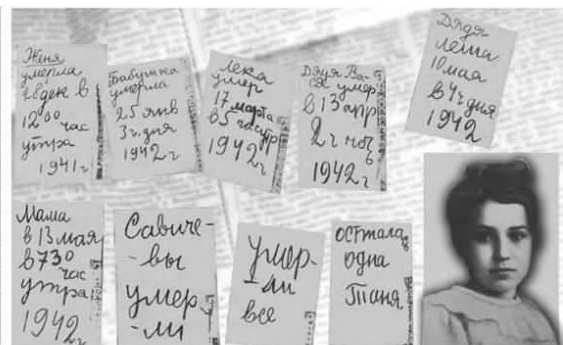 Женя
умерла
28 дек в
12 00 час
утра
1941 г
Бабушка
умерла
25 янв
3 ч. дня
1942 г
Лека
умер
17 марта
в 5 час утр
1942 г
Дядя Ва-
ся умер
в 13 апр
2 ч ноч
1942 г
Дядя
Леша
10 мая
в 4 ч дня
1942
Мама
в 13 мая
в 7 30
час
утра
1942
Савиче-
-вы
умер
-ли
умер-
-ли
все
осталась
одна
Таня